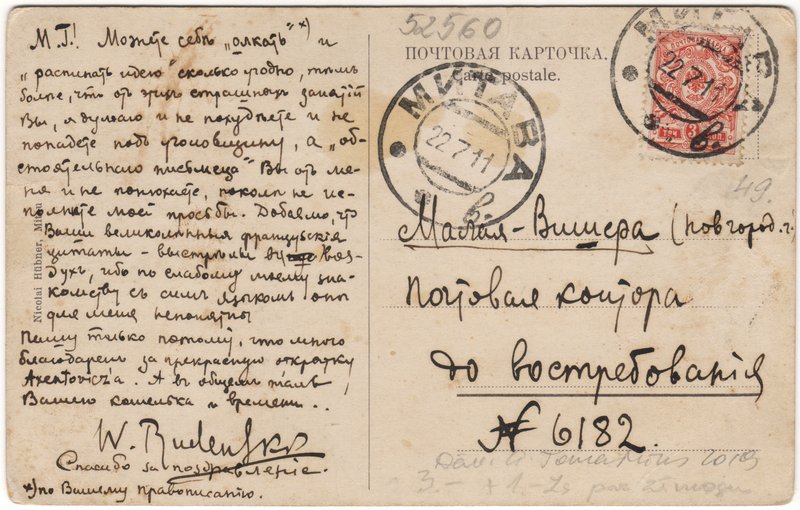 М.Г.! Можете себѣ "алкать" *) и
"распинать идею" сколько угодно, тѣмъ
болѣе, что отъ этихъ страшныхъ занятій
Вы, я думаю и не похудѣете и не
попадете подъ уголовщину, а "об-
стоятельнаго письмеца" Вы отъ ме-
ня и не понюхаете, поколѣ не ис-
полните моей просьбы. Добавлю, что
Ваши великолѣпныя французскія
цитаты - выстрѣлы въ воз-
духъ, ибо по слабому моему зна-
комству съ симъ языкомъ они
для меня непонятны
Пишу только потому, что много
благодаренъ за прекрасную открытку
Axentowicz'а. А въ общемъ жаль
Вашего кошелька и времени..
W. Rudensko
Спасибо за поздравленіе.
*) по Вашему правописанію.
Nicolai Hübner, Mitau
52560
ПОЧТОВАЯ КАРТОЧКА.
Carte postale.
МИТАВА
22.7.11
в.
МИТАВА
22.7.11
в.
ТРИ 3 КОП.
49.
Малая-Вишера (Новгород. г.)
Почтовая контора
до востребованія
№ 6182.
2019
3.-